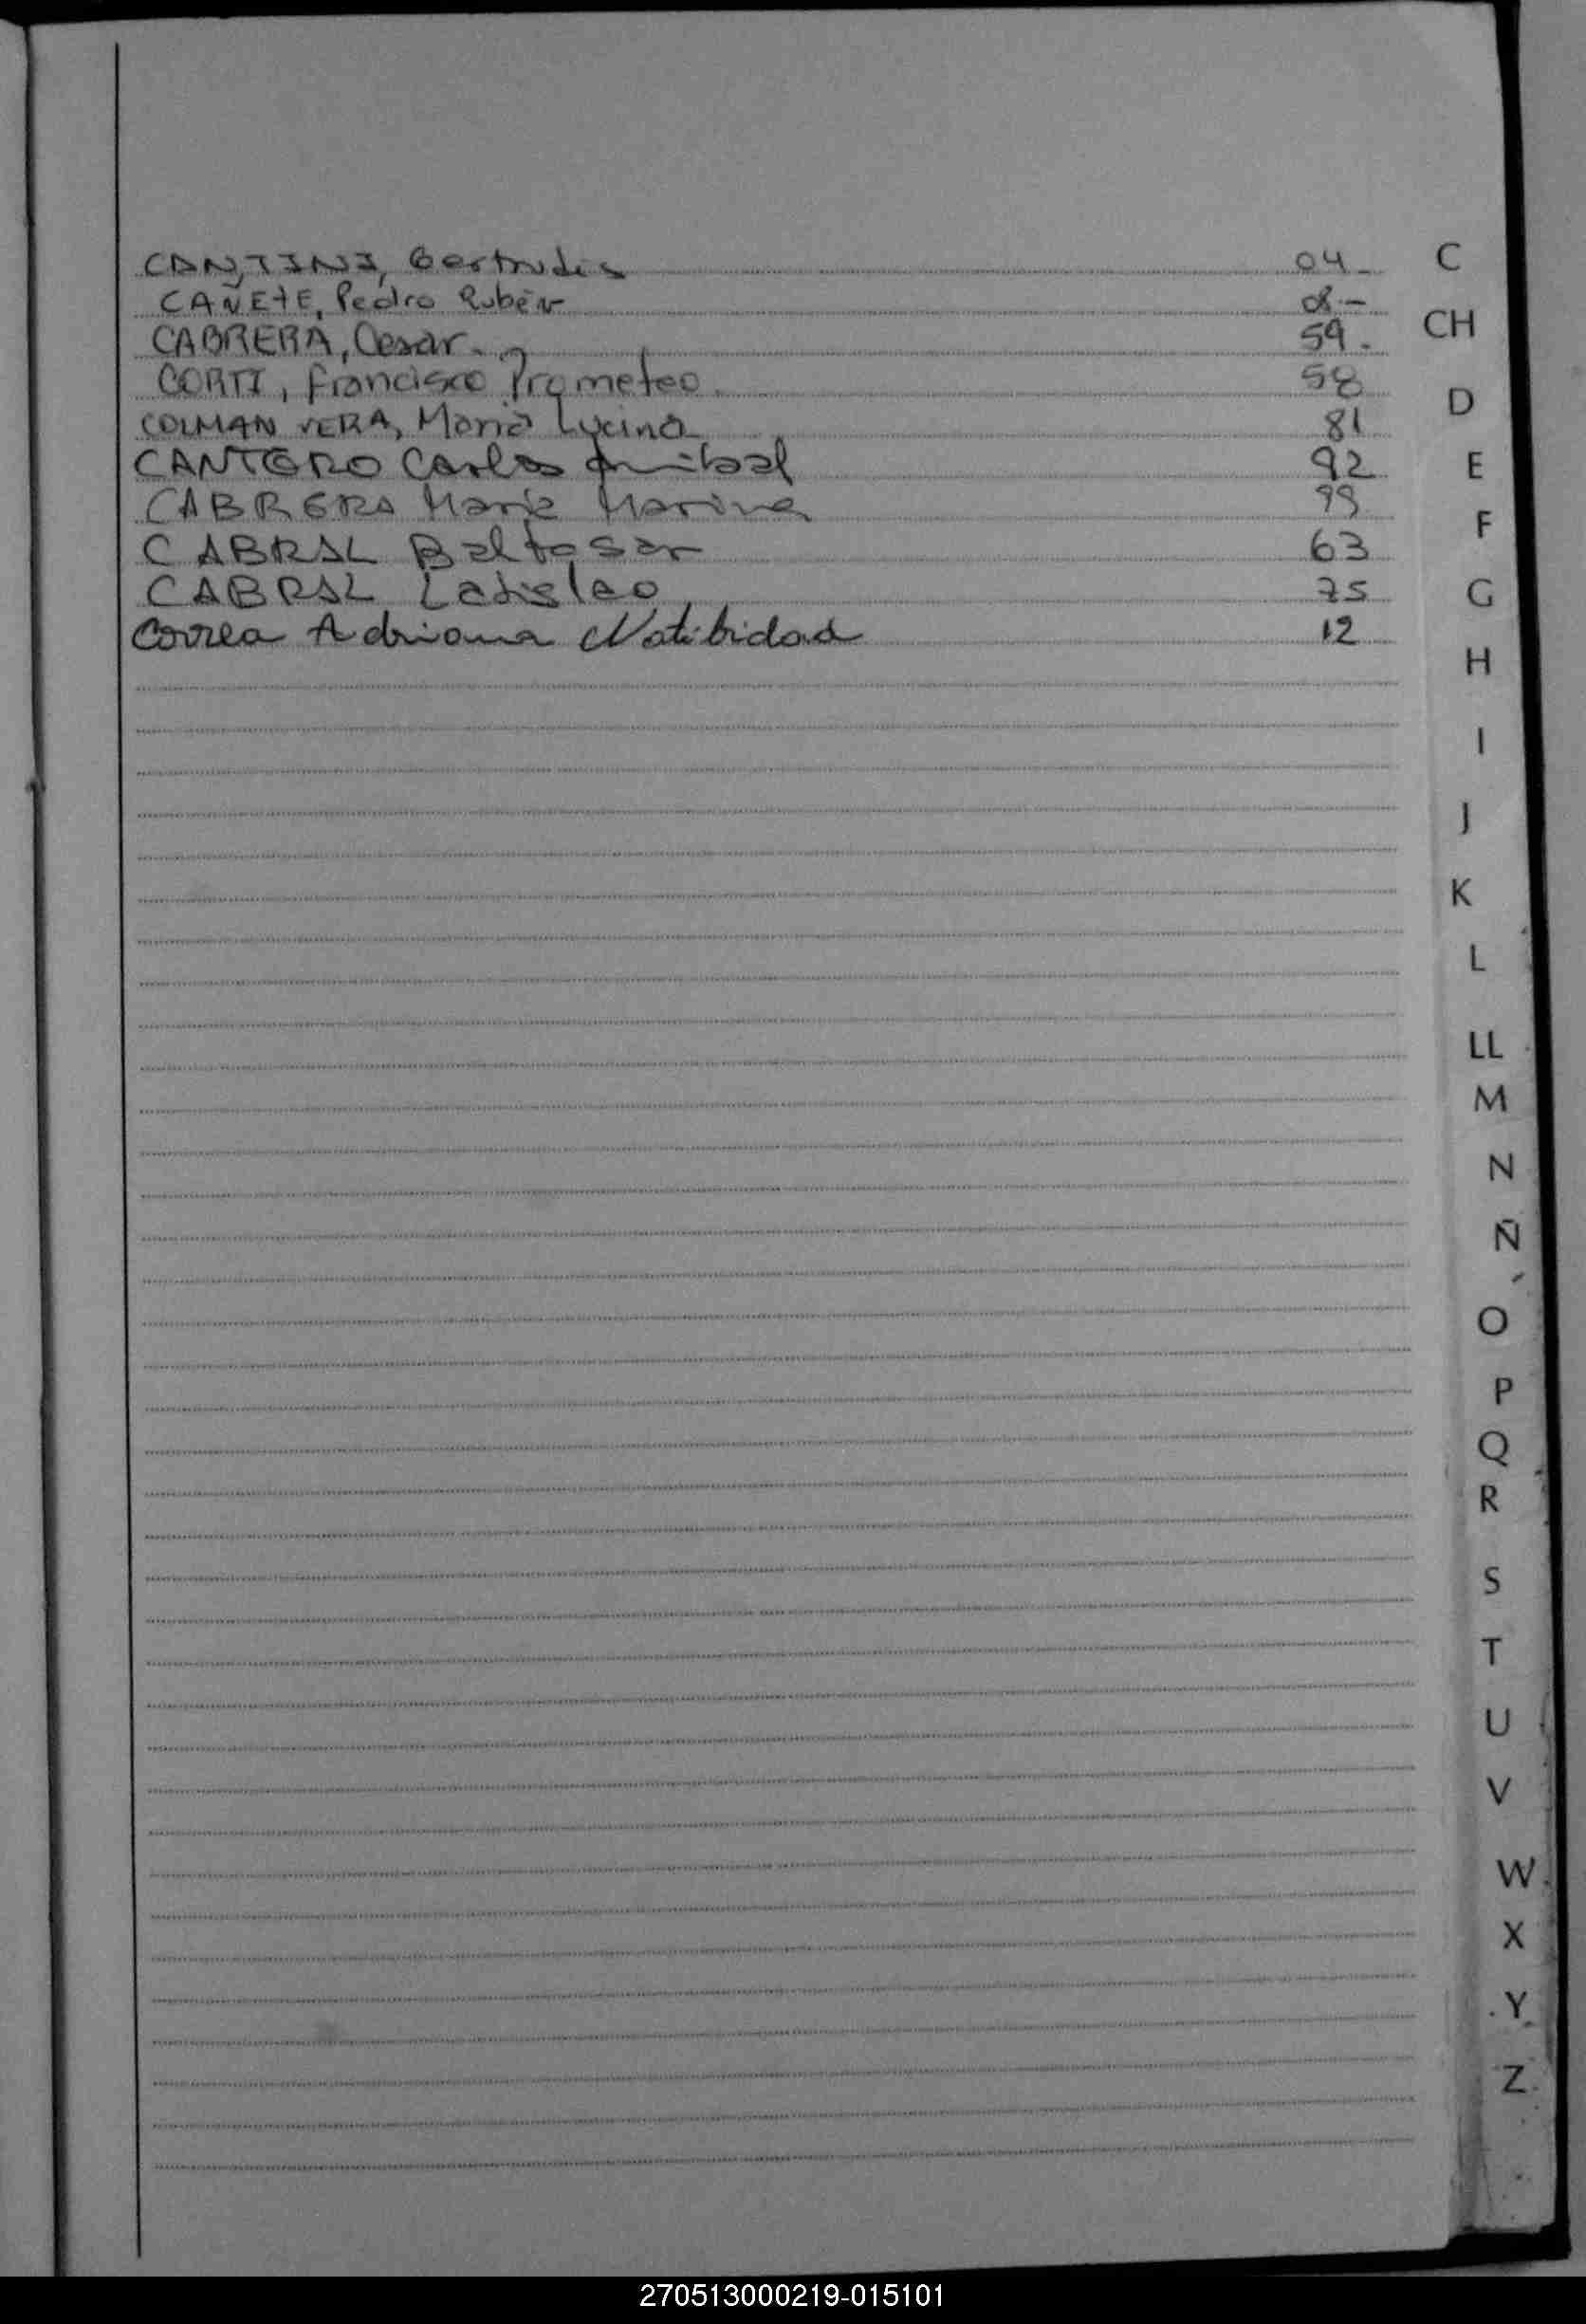 CANTINI, Gertrudis 04
CAÑETE, Pedro Rubén 08.-
CABRERA, Cesar. 59.
CORTI, Francisco Prometeo. 58
COLMAN VERA, Maria Lucina 81
CANTERO Carlos Anibal 92
CABRERA Maria Marina 99
CABRAL Baltasar 63
CABRAL Ladislao 75
Correa Adriana Natibidad 12
C
CH
D
E
F
G
H
I
J
K
L
LL
M
N
Ñ
O
P
Q
R
S
T
U
V
W
X
Y
Z
270513000219-015101